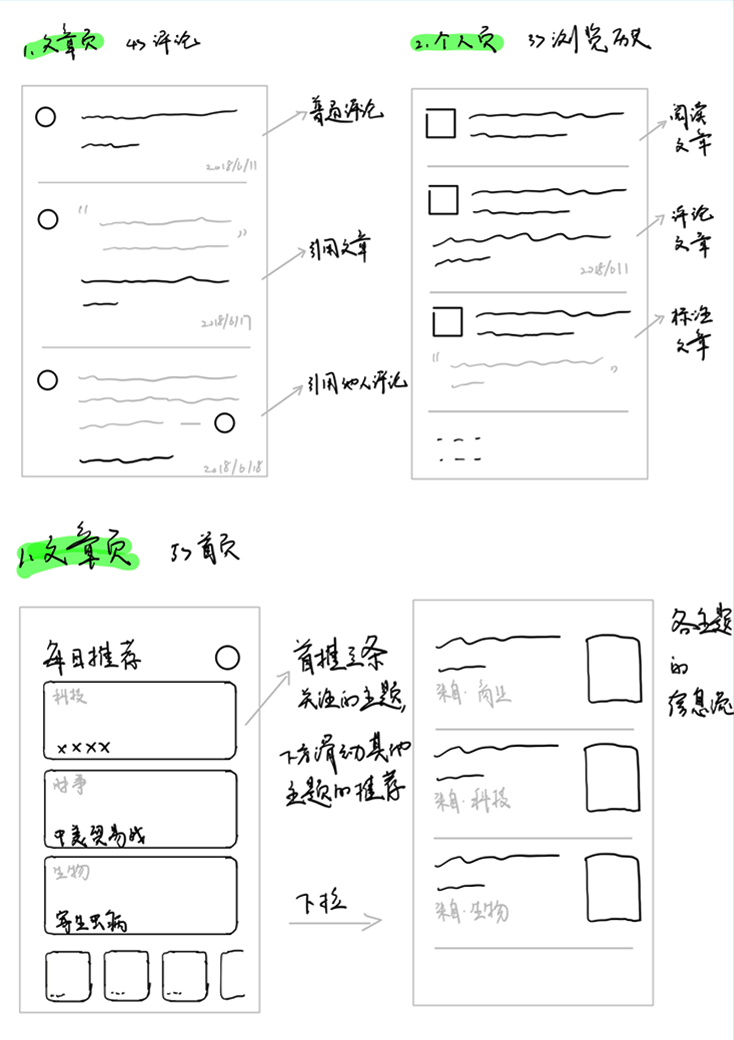 1. 文章页 4> 评论
普通评论
2018/6/11
“
”
引用文章
2018/6/17
引用他人评论
2018/6/18
2. 个人页 3> 浏览历史
阅读
文章
评论
文章
标注
文章
“
”
1. 文章页 5> 首页
每日推荐
科技
××××
时事
中美贸易战
生物
寄生虫病
首推三条
关注的主题,
下方滑动其他
主题的推荐
下拉
来自·商业
来自·科技
来自·生物
各主题
的
信息流